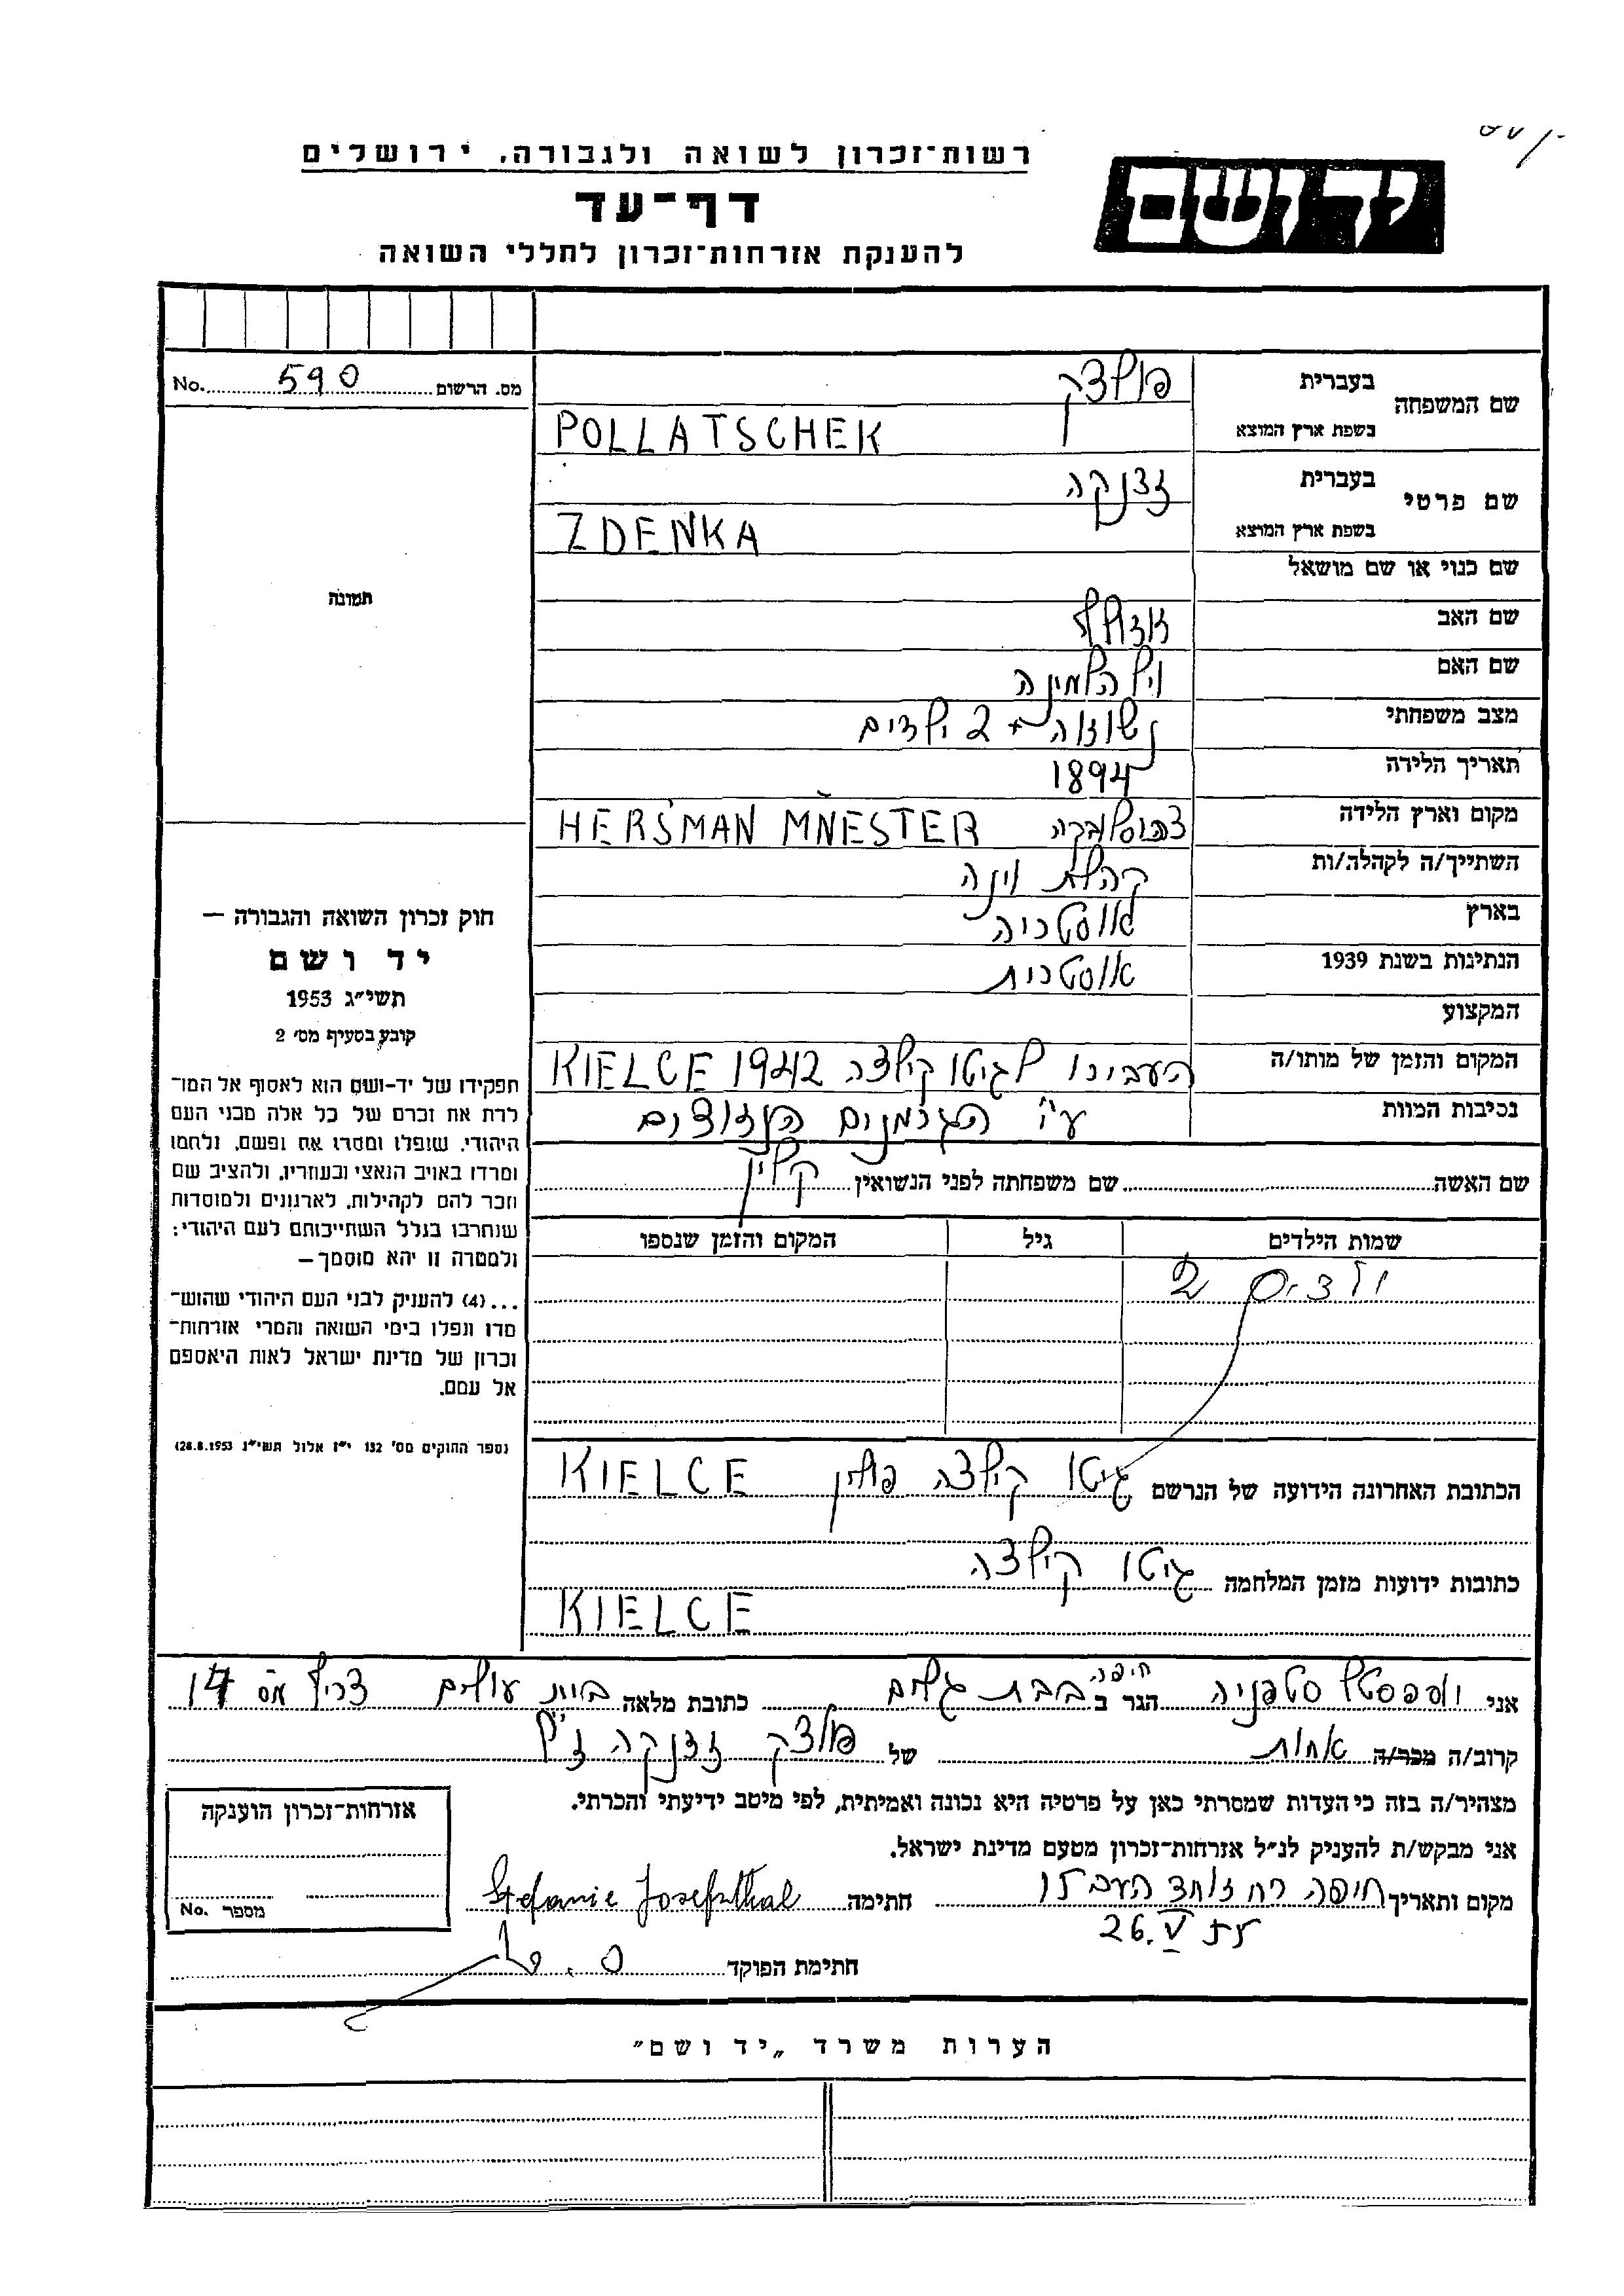 רשות־זכרון לשואה ולגבורה, ירושלים
יד ושם
דף־עד
להענקת אזרחות־זכרון לחללי השואה
מס. הרשום 590 No.
שם המשפחה
בעברית פולצק
בשפת ארץ המוצא POLLATSCHEK
שם פרטי
בעברית זדנקה
בשפת ארץ המוצא ZDENKA
שם כנוי או שם מושאל
תמונה
שם האב אדולף
שם האם וילהלמינה
מצב משפחתי נשואה + 2 ילדים
תאריך הלידה 1894
מקום וארץ הלידה HERSMAN MNESTER
השתייך/ה לקהלה/ות קהלת וינה
בארץ אוסטריה
הנתינות בשנת 1939 אוסטרית
המקצוע
המקום והזמן של מותו/ה העבירו לגיטו קילצה KIELCE 1942
נסיבות המוות ע"י הגרמנים הנאצים
שם האשה שם משפחתה לפני הנשואין קליין
שמות הילדים גיל המקום והזמן שנספו
2 ילדים
הכתובת האחרונה הידועה של הנרשם גיטו קילצה פולין KIELCE
כתובות ידועות מזמן המלחמה גיטו קילצה
KIELCE
חוק זכרון השואה והגבורה —
יד ושם
תשי״ג 1953
קובע בסעיף מס׳ 2
תפקידו של יד־ושם הוא לאסוף אל המו־
לדת את זכרם של כל אלה מבני העם
היהודי, שנפלו ומסרו את נפשם, נלחמו
ומרדו באויב הנאצי ובעוזריו, ולהציב שם
וזכר להם לקהילות, לארגונים ולמוסדות
שנחרבו בגלל השתייכותם לעם היהודי;
ולמטרה זו יהא מוסמך—
...(4) להעניק לבני העם היהודי שהוש־
מדו ונפלו בימי השואה והמרי אזרחות־
זכרון של מדינת ישראל לאות היאספם
אל עמם.
(ספר החוקים מס׳ 132 י״ז אלול תשי״ג 28.8.1953)
אני סטפניה הגר ב חיפה בבת גלים כתובת מלאה בית עולים צריף מס 14
קרוב/ה מכר/ה אחות של פולצק זדנקה ז"ל
מצהיר/ה בזה כי העדות שמסרתי כאן על פרטיה היא נכונה ואמיתית, לפי מיטב ידיעתי והכרתי.
אני מבקש/ת להעניק לנ״ל אזרחות־זכרון מטעם מדינת ישראל.
מקום ותאריך חיפה רח אחד העם 15 חתימה Stefanie Josefsthal
26.V 55
חתימת הפוקד
אזרחות־זכרון הוענקה
מספר No.
הערות משרד „יד ושם״